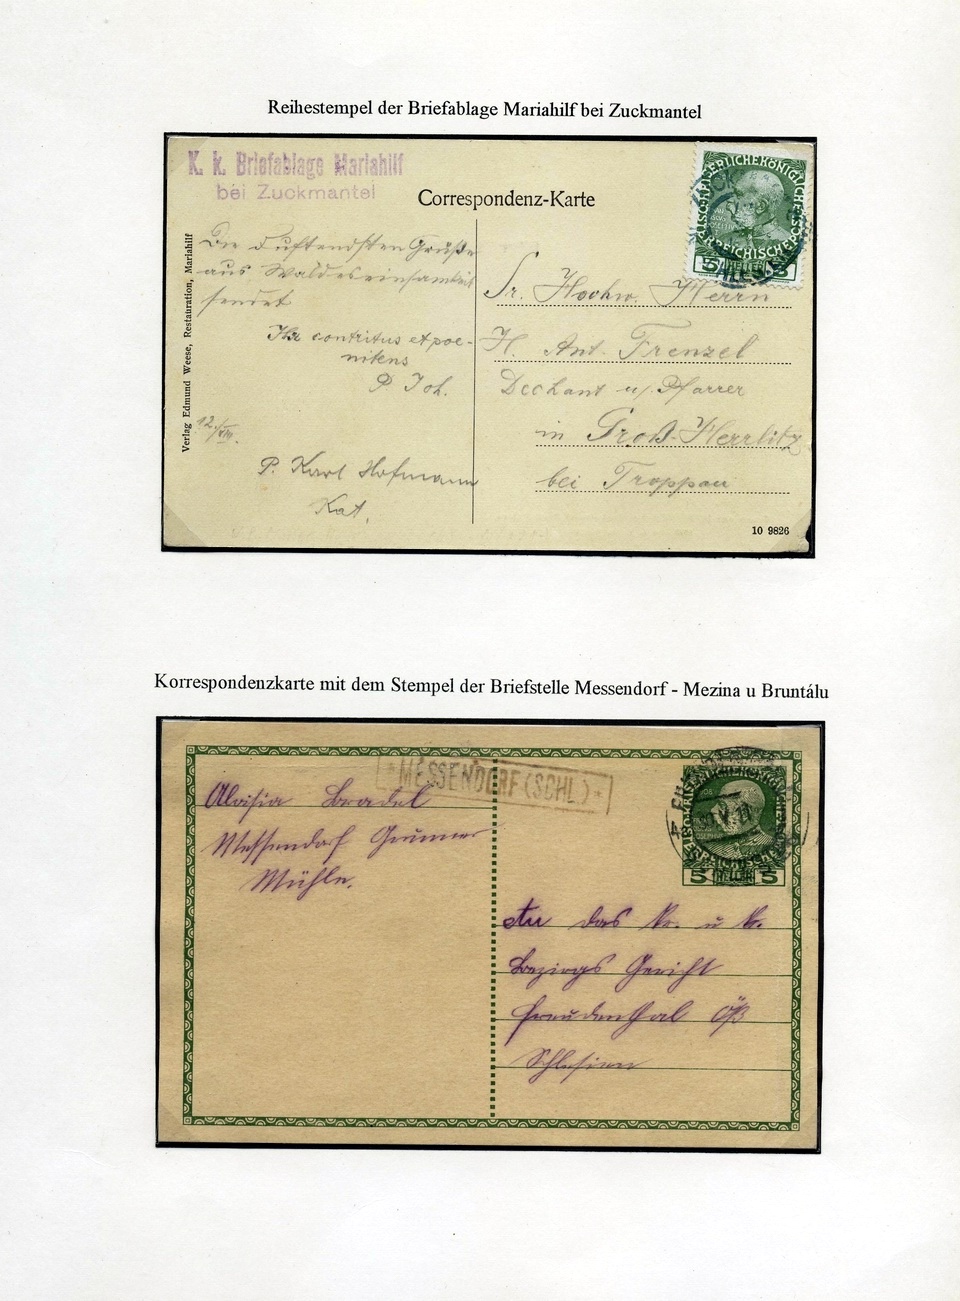 Reihestempel der Briefablage Mariahilf bei Zuckmantel
K. k. Briefablage Mariahilf
bei Zuckmantel
Correspondenz-Karte
Die duftendsten Grüße
aus Waldeseinsamkeit
sendet
Ihr contritus et poe-
nitens
P Joh.
12./VIII.
P. Karl Hofmann
Kat.
Verlag Edmund Weese, Restauration, Mariahilf
5 HELLER
Sr. Hochw. Herrn
H. Ant. Frenzel
Dechant u. Pfarrer
in Groß-Herrlitz
bei Troppau
10 9826
Korrespondenzkarte mit dem Stempel der Briefstelle Messendorf - Mezina u Bruntálu
*MESSENDORF (SCHL.)*
Aloisia Bradel
Messendorf
Mühle.
5 HELLER 5
An das k. u k.
Bezirgs Gericht
Freudenthal Öß
Schlesien